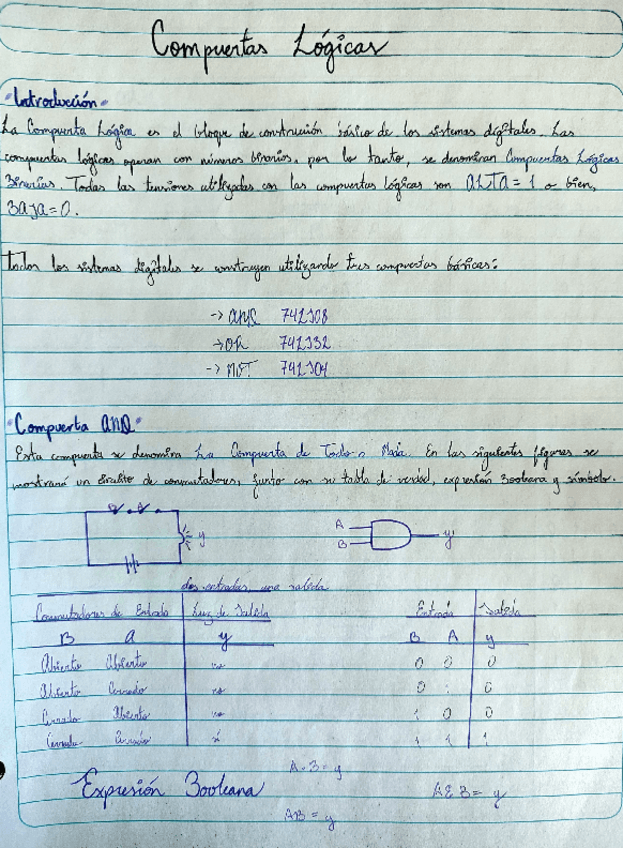 Compuertas Lógicas
"Introducción"
La Compuerta Lógica es el bloque de construcción básico de los sistemas digitales. Las
compuertas lógicas operan con números binarios, por lo tanto, se denominan Compuertas Lógicas
Binarias. Todas las tensiones utilizadas con las compuertas lógicas son ALTA = 1 o bien,
BAJA = 0.
Todos los sistemas digitales se construyen utilizando tres compuertas básicas:
-> AND 74LS08
-> OR 74LS32
-> NOT 74LS04
"Compuerta AND"
Esta compuerta se denomina La Compuerta de Todo o Nada. En las siguientes figuras se
mostrará un circuito de conmutadores, junto con su tabla de verdad, expresión Booleana y símbolo.
y A B y
dos entradas, una salida
Conmutadores de Entrada Luz de Salida Entrada Salida
B A y B A y
Abierto Abierto no 0 0 0
Abierto Cerrado no 0 1 0
Cerrado Abierto no 1 0 0
Cerrado Cerrado sí 1 1 1
Expresión Booleana A·B = y A&B = y
AB = y